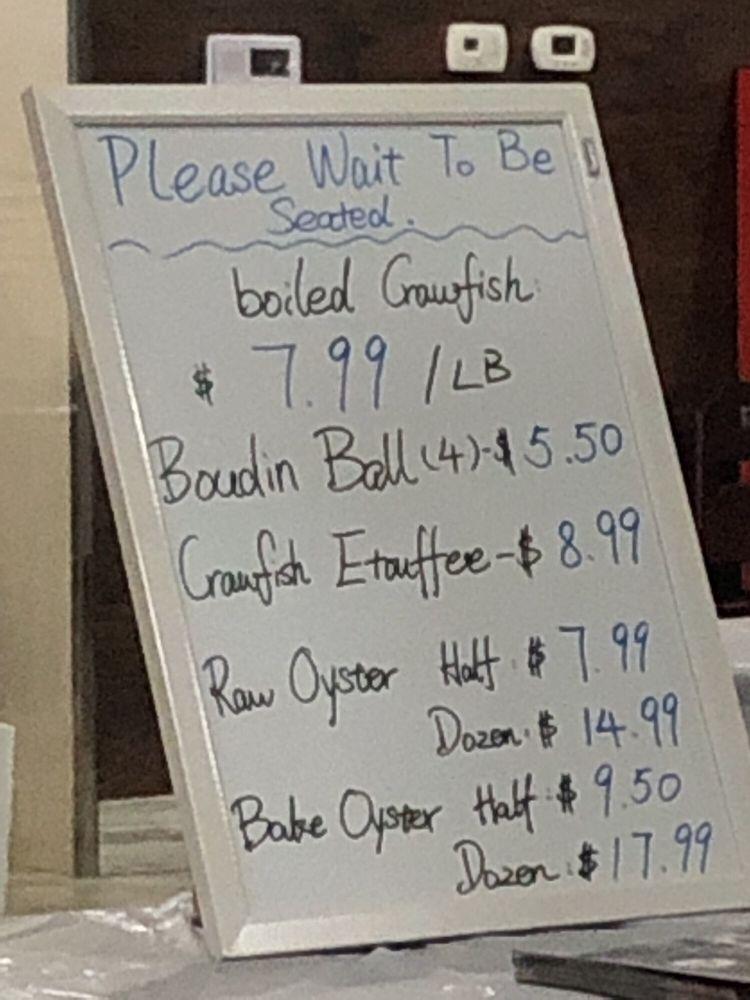 Please Wait To Be
Seated.
boiled Crawfish:
$ 7.99 /LB
Boudin Ball (4)-$5.50
Crawfish Etouffee-$ 8.99
Raw Oyster Half: $ 7.99
Dozen: $ 14.99
Bake Oyster Half: $ 9.50
Dozen: $17.99